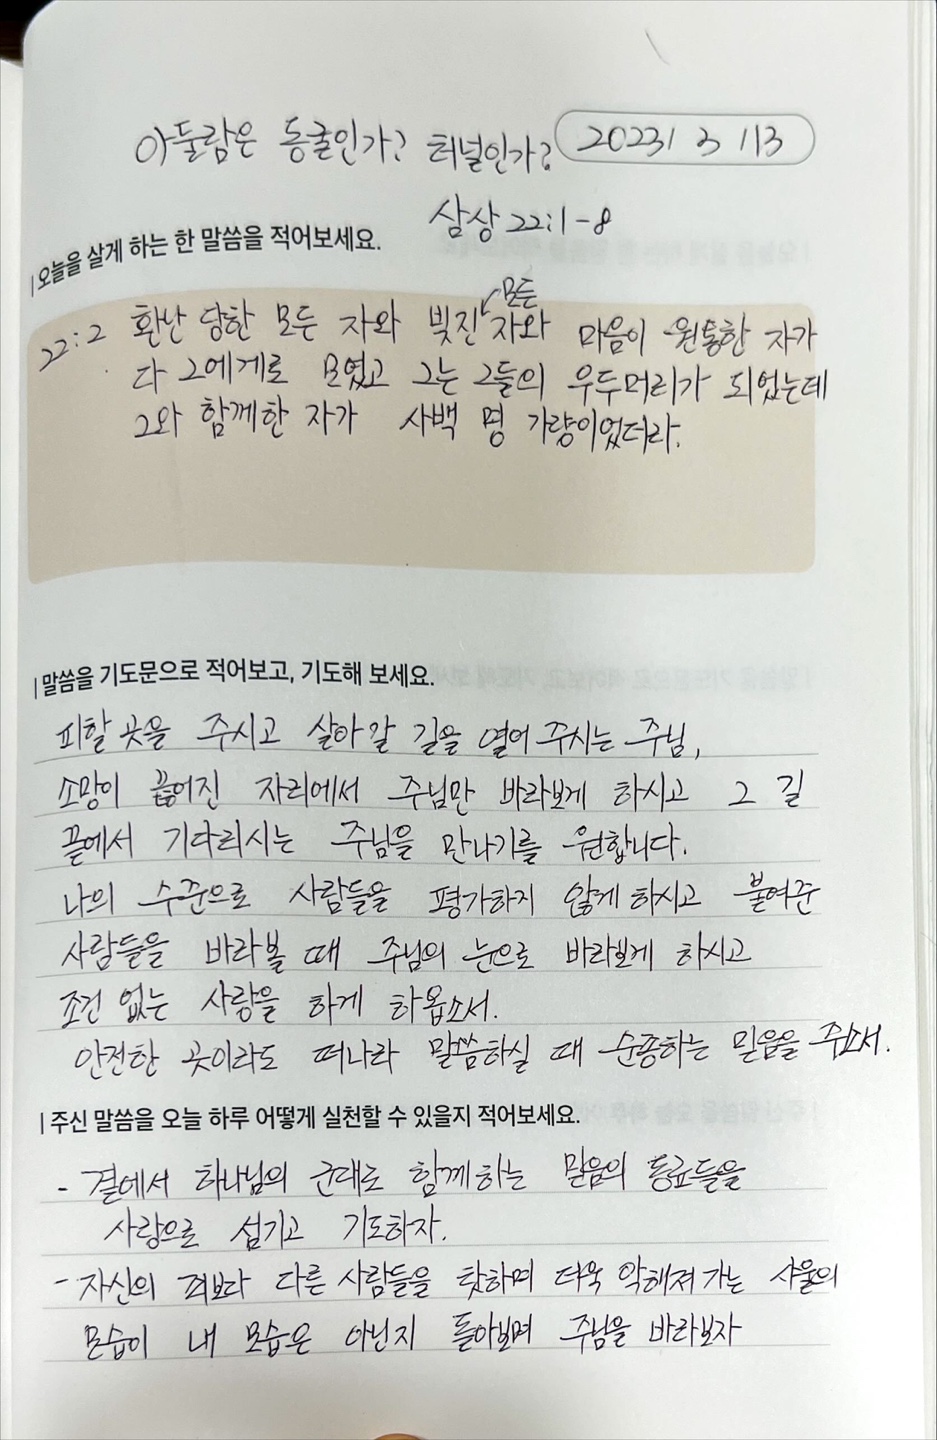 아둘람은 동굴인가? 터널인가? 2023/ 3 /13
삼상 22:1-8
오늘을 살게 하는 한 말씀을 적어보세요.
모든
22:2 환난 당한 모든 자와 빚진 자와 마음이 원통한 자가
다 그에게로 모였고 그는 그들의 우두머리가 되었는데
그와 함께한 자가 사백 명 가량이었더라.
말씀을 기도문으로 적어보고, 기도해 보세요.
피할 곳을 주시고 살아갈 길을 열어 주시는 주님,
소망이 끊어진 자리에서 주님만 바라보게 하시고 그 길
끝에서 기다리시는 주님을 만나기를 원합니다.
나의 수준으로 사람들을 평가하지 않게 하시고 붙여준
사람들을 바라볼 때 주님의 눈으로 바라보게 하시고
조건 없는 사랑을 하게 하옵소서.
안전한 곳이라도 떠나라 말씀하실 때 순종하는 믿음을 주소서.
주신 말씀을 오늘 하루 어떻게 실천할 수 있을지 적어보세요.
- 곁에서 하나님의 군대로 함께하는 믿음의 동료들을
사랑으로 섬기고 기도하자.
- 자신의 죄보다 다른 사람들을 탓하며 더욱 악해져 가는 사울의
모습이 내 모습은 아닌지 돌아보며 주님을 바라보자